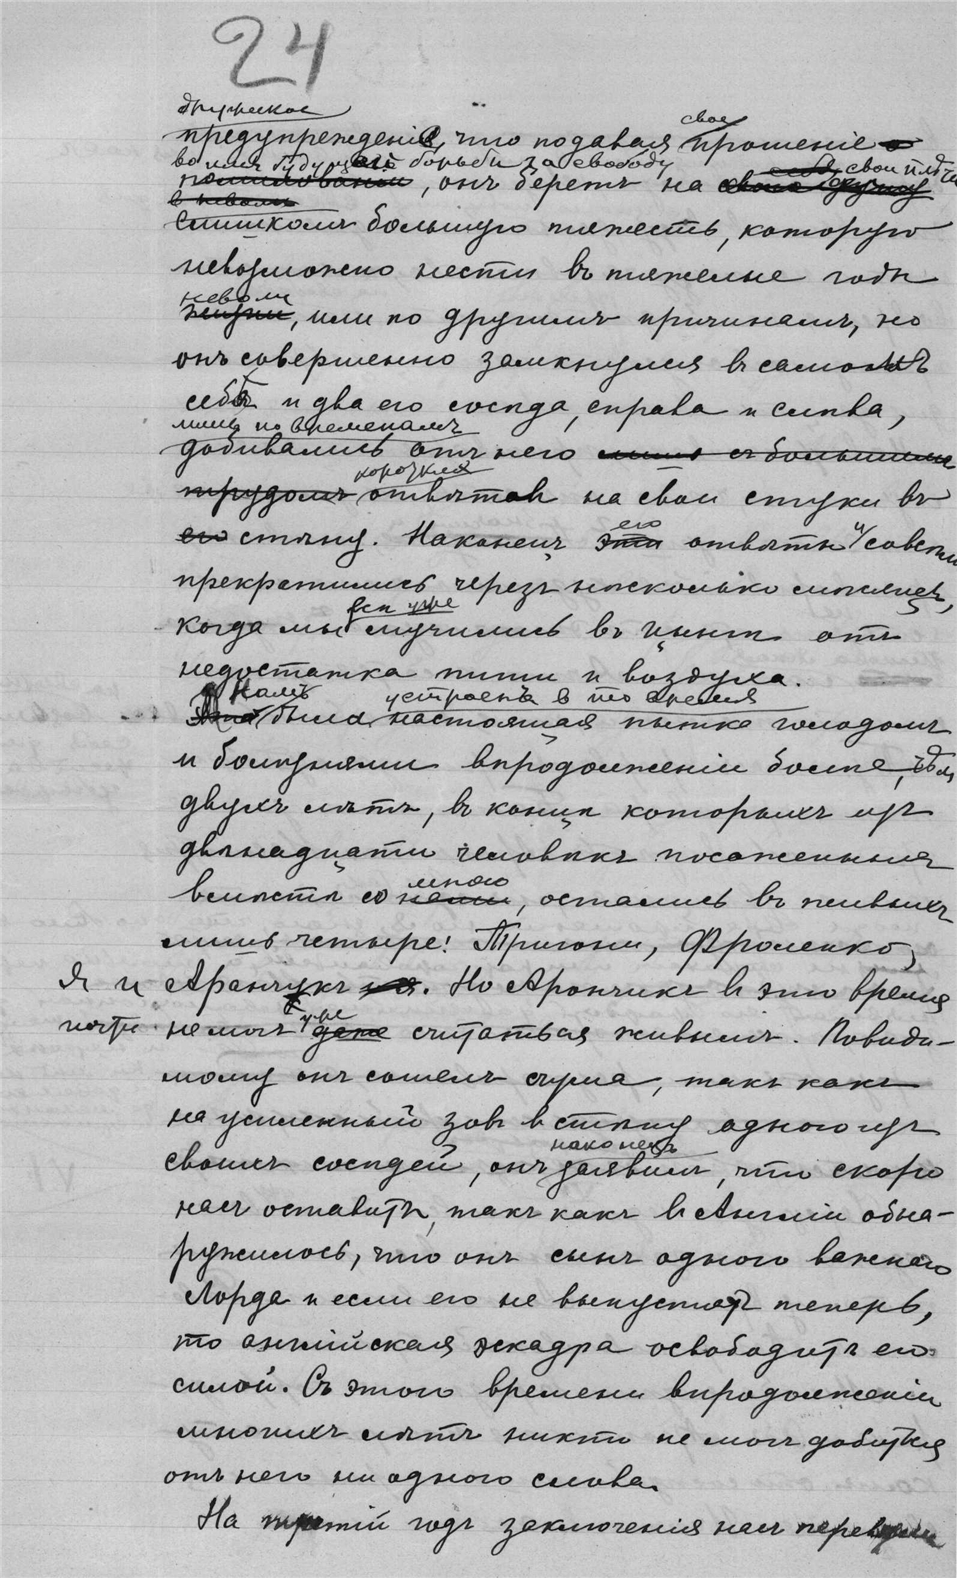 24
дружеское
предупрежденіе, что подавая свое прошеніе о
во имя будущей борьбы за свободу
помилованіи, онъ беретъ на себя свои плечи
въ неволѣ
слишкомъ большую тяжесть, которую
невозможно нести въ тяжелые годы
неволи
жизни, или по другимъ причинамъ, но
онъ совершенно замкнулся въ самомъ
себѣ и два его сосѣда, справа и слѣва,
лишь по временамъ
добивались отъ него лишь съ большимъ
короткихъ
трудомъ отвѣтовъ на свои стуки въ
его
его стѣну. Наконецъ эти отвѣты и совсѣмъ
прекратились черезъ нѣсколько мѣсяцевъ,
всѣ уже
когда мы мучились въ цынгѣ отъ
недостатка пищи и воздуха.
Намъ устроена въ то время
Это была настоящая пытка голодомъ
и болѣзнями впродолженіи болѣе, чѣмъ
двухъ лѣтъ, въ концѣ которыхъ изъ
двѣнадцати человѣкъ посаженныхъ
мною
вмѣстѣ со нами, остались въ живыхъ
лишь четыре: Тригони, Фроленко,
я и Арончикъ и я. Но Арончикъ въ это время
уже
почти не могъ даже считаться живымъ. Повиди-
мому онъ сошелъ съ ума, такъ какъ
на усиленный зовъ въ стѣну одного изъ
наконецъ
своихъ сосѣдей, онъ заявилъ, что скоро
насъ оставитъ, такъ какъ въ Англіи обна-
ружилось, что онъ сынъ одного важнаго
Лорда и если его не выпустятъ теперь,
то англійская эскадра освободитъ его
силой. Съ этого времени впродолженіи
многихъ лѣтъ никто не могъ добиться
отъ него ни одного слова.
На третій годъ заключенія насъ перевели